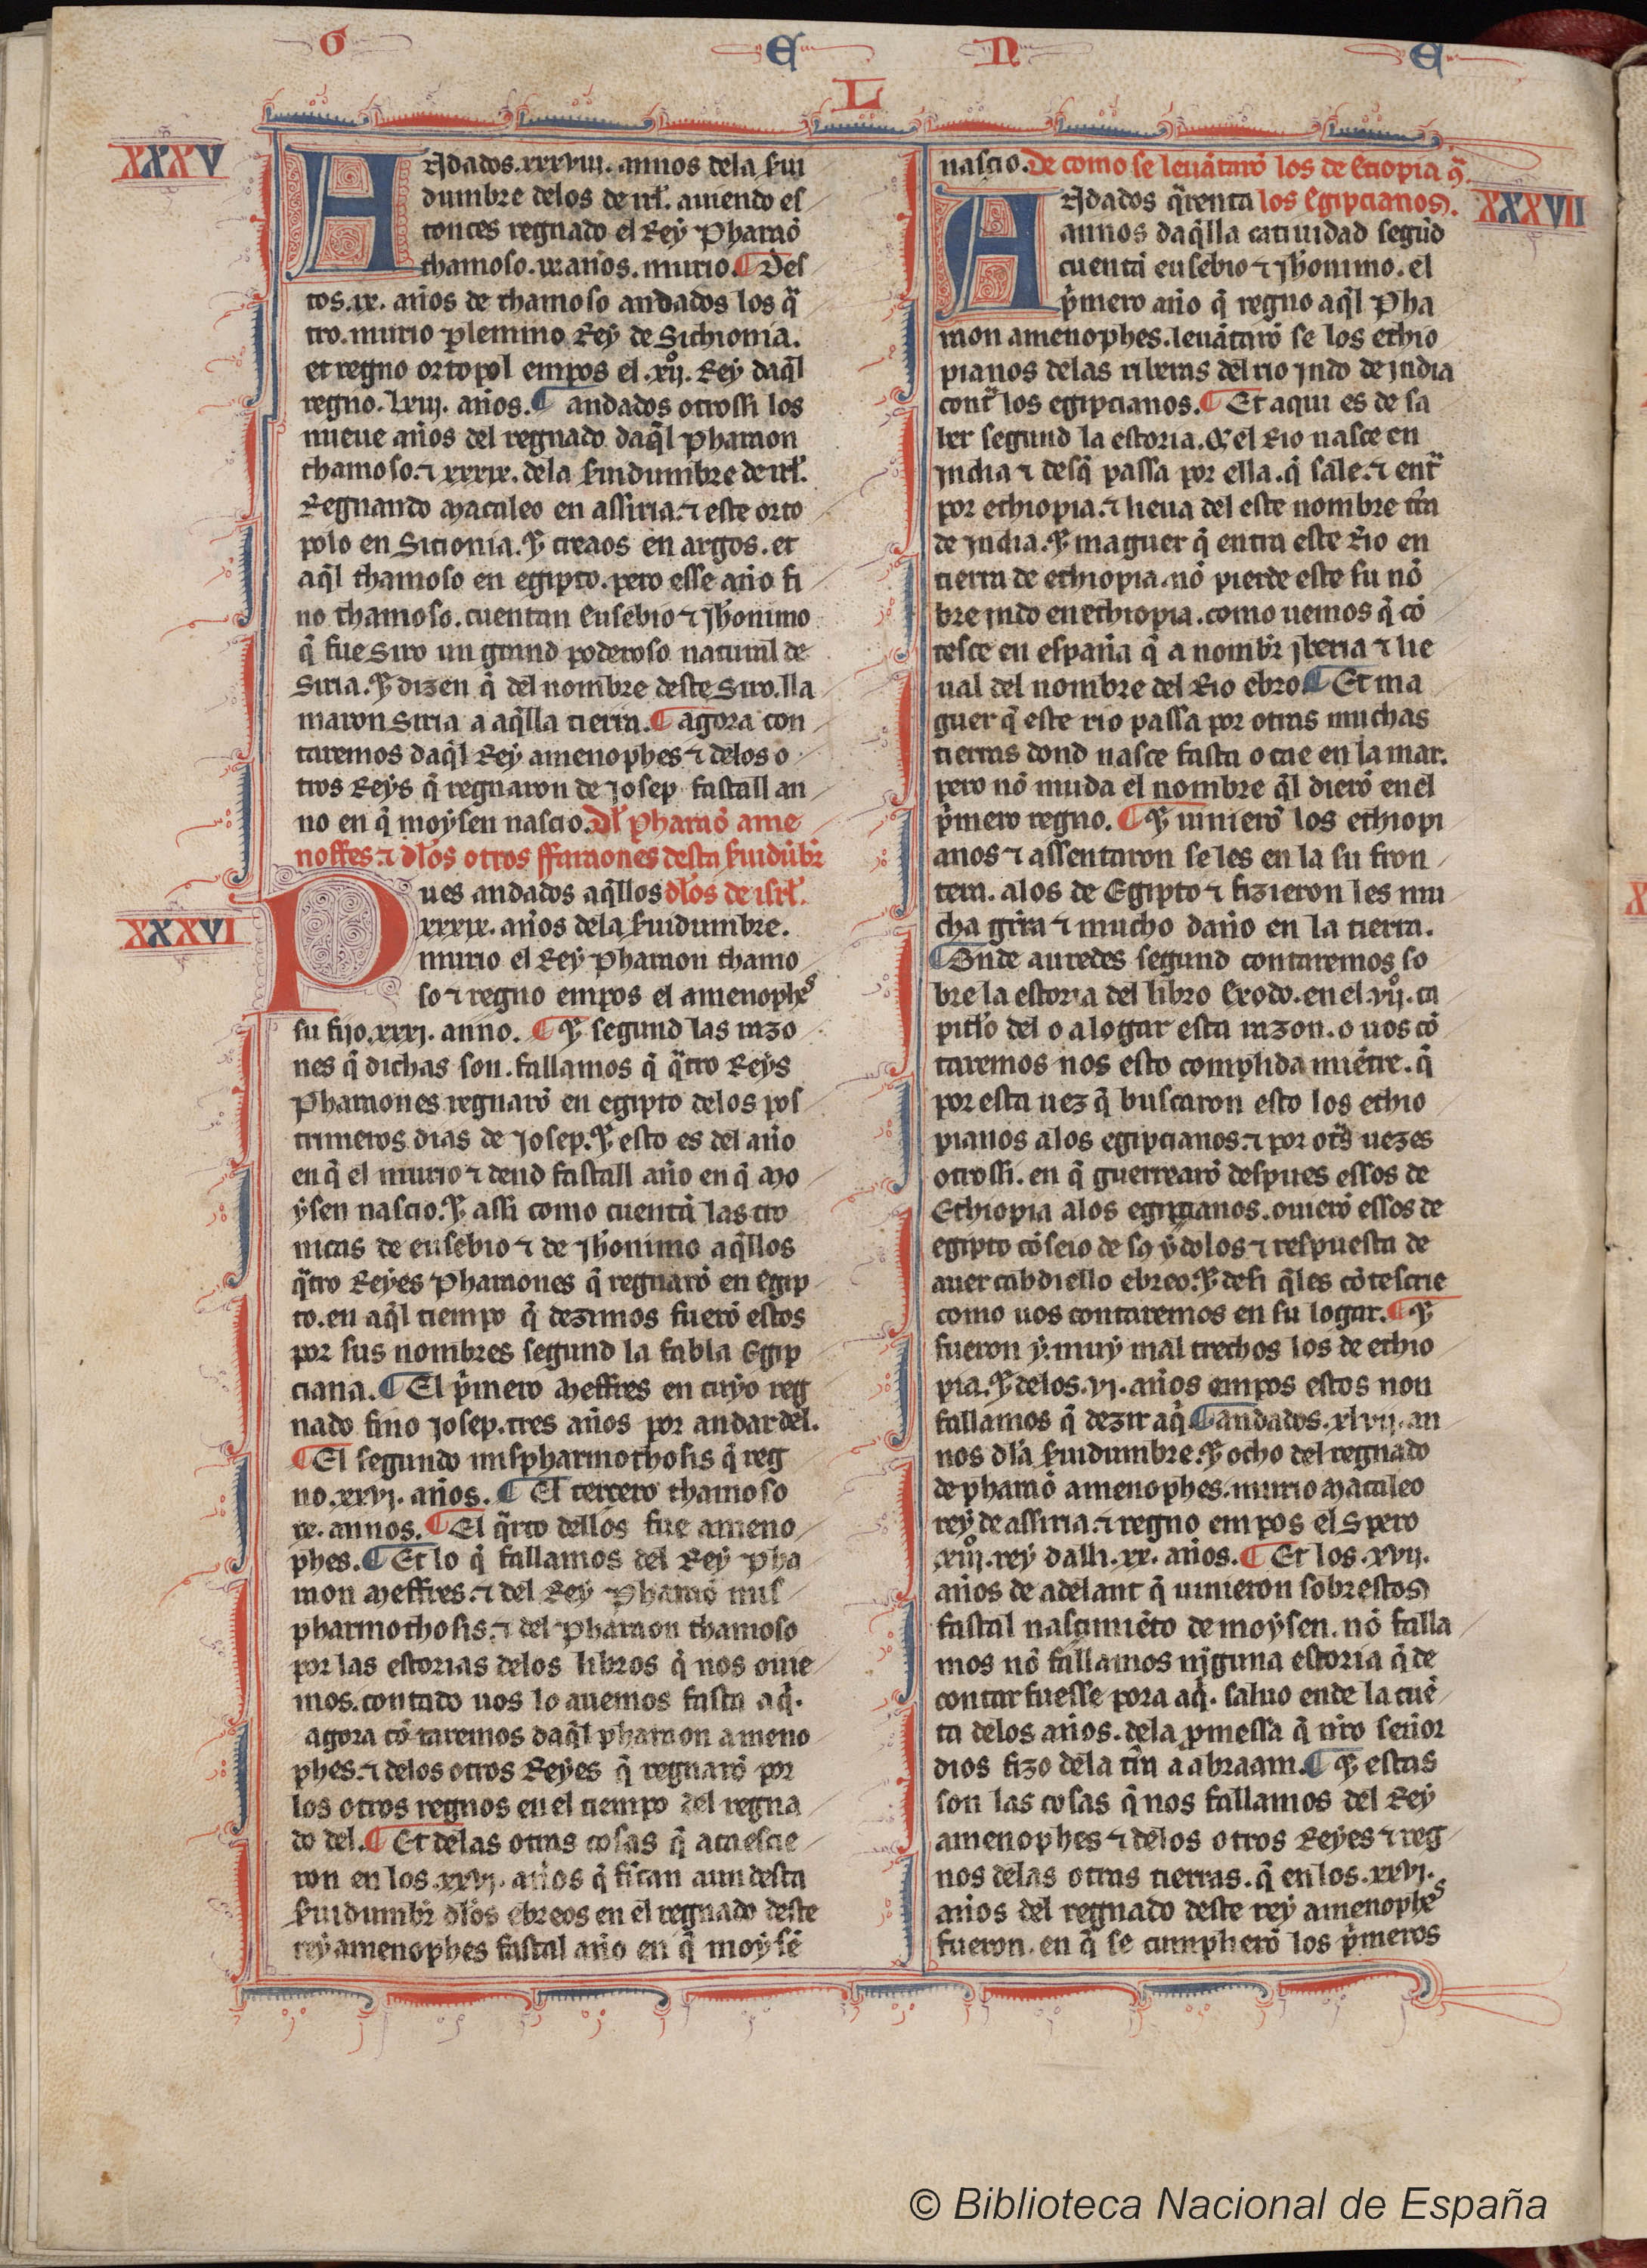 G E N E
L
XXXV
Andados .xxxviii. annos dela serui
dumbre delos de irl̃. auiendo es
tonces regnado el Rey Pharaõ
thamoso .ix. años. murio. ¶ Des
tos .ix. años de thamoso andados los q̃
tro. murio plemino Rey de Sichionia.
et regno ortopol empos el .xij.º Rey daq̃l
regno. lxiij. años. ¶ andados otrossi los
nueue años del regnado daq̃l pharaon
thamoso. ⁊ xxxix. dela s̃uidumbre de irl̃.
Regnando Macaleo en assiria. ⁊ este orto
polo en Sicionia. Y creaos en argos. et
aq̃l thamoso en egipto. pero esse año fi
no thamoso. cuentan Eusebio ⁊ Jh̃onimo
q̃ fue Siro un grand poderoso natural de
Siria. Y dizen q̃ del nombre deste Siro. lla
maron Siria a aq̃lla tierra. ¶ agora con
taremos daq̃l Rey amenophes ⁊ delos o
tros Reys q̃ regnaron de Josep fastall an
no en q̃ moysen nascio. Dl̃ Pharaõ ame
noffes. ⁊ dl̃os otros ffaraones desta s̃uidũbr̃
XXXVI
Pues andados aq̃llos dl̃os de isrl̃.
xxxix. años dela s̃uidumbre.
murio el Rey Pharaon thamo
so ⁊ regno empos el amenophes
su fijo .xxxj. anno. ¶ Y segund las razo
nes q̃ dichas son. fallamos q̃ q̃tro Reys
Pharaones regnarõ en egipto delos pos
trimeros dias de Josep. Y esto es del año
en q̃ el murio ⁊ dend fastall año en q̃ Mo
ysen nascio. Y assi como cuentã las cro
nicas de eusebio ⁊ de Jh̃onimo aq̃llos
q̃tro Reyes Pharaones q̃ regnarõ en Egip
to. en aq̃l tiempo q̃ dezimos fuerõ estos
por sus nombres segund la fabla Egip
ciana. ¶ El p̃mero Meffres en cuyo reg
nado fino Josep. tres años por andar del.
¶ El segundo mispharmothosis q̃ reg
no .xxvj. años. ¶ El tercero thamoso
ix. annos. ¶ El q̃rto dellos fue ameno
phes. ¶ Et lo q̃ fallamos del Rey Pha
raon Meffres. ⁊ del Rey Pharaõ mis
pharmothosis. ⁊ del Pharaon thamoso
por las estorias delos libros q̃ nos ouie
mos. contado uos lo auemos fasta aq̃.
agora cõtaremos daq̃l pharaon ameno
phes. ⁊ delos otros Reyes q̃ regnarõ por
los otros regnos en el tiempo del regna
do del. ¶ Et delas otras cosas q̃ acaescie
ron en los .xxvj. años q̃ fican aun desta
s̃uidumbr̃ dl̃os ebreos en el regnado deste
rey amenophes fastal año en q̃ moysẽ
nascio. De como se leuãtarõ los de Etiopia q̃.
XXXVII
Andados q̃renta los Egipcianos.
annos daq̃lla catiuidad segũd
cuentã eusebio ⁊ Jh̃onimo. el
p̃mero año q̃ regno aq̃l Pha
raon amenophes. leuãtarõ se los ethio
pianos delas riberas del rio Jndo de Jndia
contr̃ los egipcianos. ¶ Et aqui es de sa
ber segund la estoria. q̃ el Rio nasce en
Jndia ⁊ desq̃ passa por ella. q̃ sale. ⁊ entr̃
por ethiopia. ⁊ lieua del este nombre tr̃ra
de Jndia. Y maguer q̃ entra este Rio en
tierra de ethiopia. nõ pierde este su nõ
bre Jndo en ethiopia. como uemos q̃ cõ
tesce en españa q̃ a nombr̃ Jberia ⁊ lie
ual del nombre del Rio ebro. ¶ Et ma
guer q̃ este rio passa por otras muchas
tierras dond nasce fasta o cae en la mar.
pero nõ muda el nombre q̃l dierõ en el
p̃mero regno. ¶ Y uinierõ los ethiopi
anos ⁊ assentaron seles en la su fron
tera. alos de Egipto ⁊ fizieron les mu
cha grr̃a ⁊ mucho daño en la tierra.
¶ Onde auredes segund contaremos so
bre la estoria del libro Exodo. en el .vij.º ca
pitl̃o del o a logar esta razon. o uos cõ
taremos nos esto complida miẽtre. q̃
por esta uez q̃ buscaron esto los ethio
pianos alos egipcianos. ⁊ por otr̃s uezes
otrossi. en q̃ guerrearõ despues essos de
Ethiopia alos egipcianos. ouierõ essos de
egipto cõseio de sꝯ ydolos ⁊ respuesta de
auer cabdiello ebreo. Y desi q̃les cõtescie
como uos contaremos en su logar. ¶ Y
fueron y. muy mal trechos los de ethio
pia. Y delos .vj. años empos estos non
fallamos q̃ dezir aq̃. ¶ andados .xlvij. an
nos dl̃a s̃uidumbre. Y ocho del regnado
de pharaõ amenophes. murio Macaleo
rey de assiria. ⁊ regno empos el Spero
.xiij.º rey dalli .xx. años. ¶ Et los .xvij.
años de adelant q̃ uinieron sobrestos
fastal nascimiẽto de moysen. nõ falla
mos nõ fallamos nĩguna estoria q̃ de
contar fuesse pora aq̃. saluo ende la cuẽ
ta delos años. dela ꝓmessa q̃ nr̃o señor
dios fizo dela tr̃ra a abraam. ¶ Y estas
son las cosas q̃ nos fallamos del Rey
amenophes ⁊ delos otros Reyes ⁊ reg
nos delas otras tierras. q̃ en los .xxvj.
años del regnado deste rey amenophes
fueron. en q̃ se cumplierõ los p̃meros
© Biblioteca Nacional de España